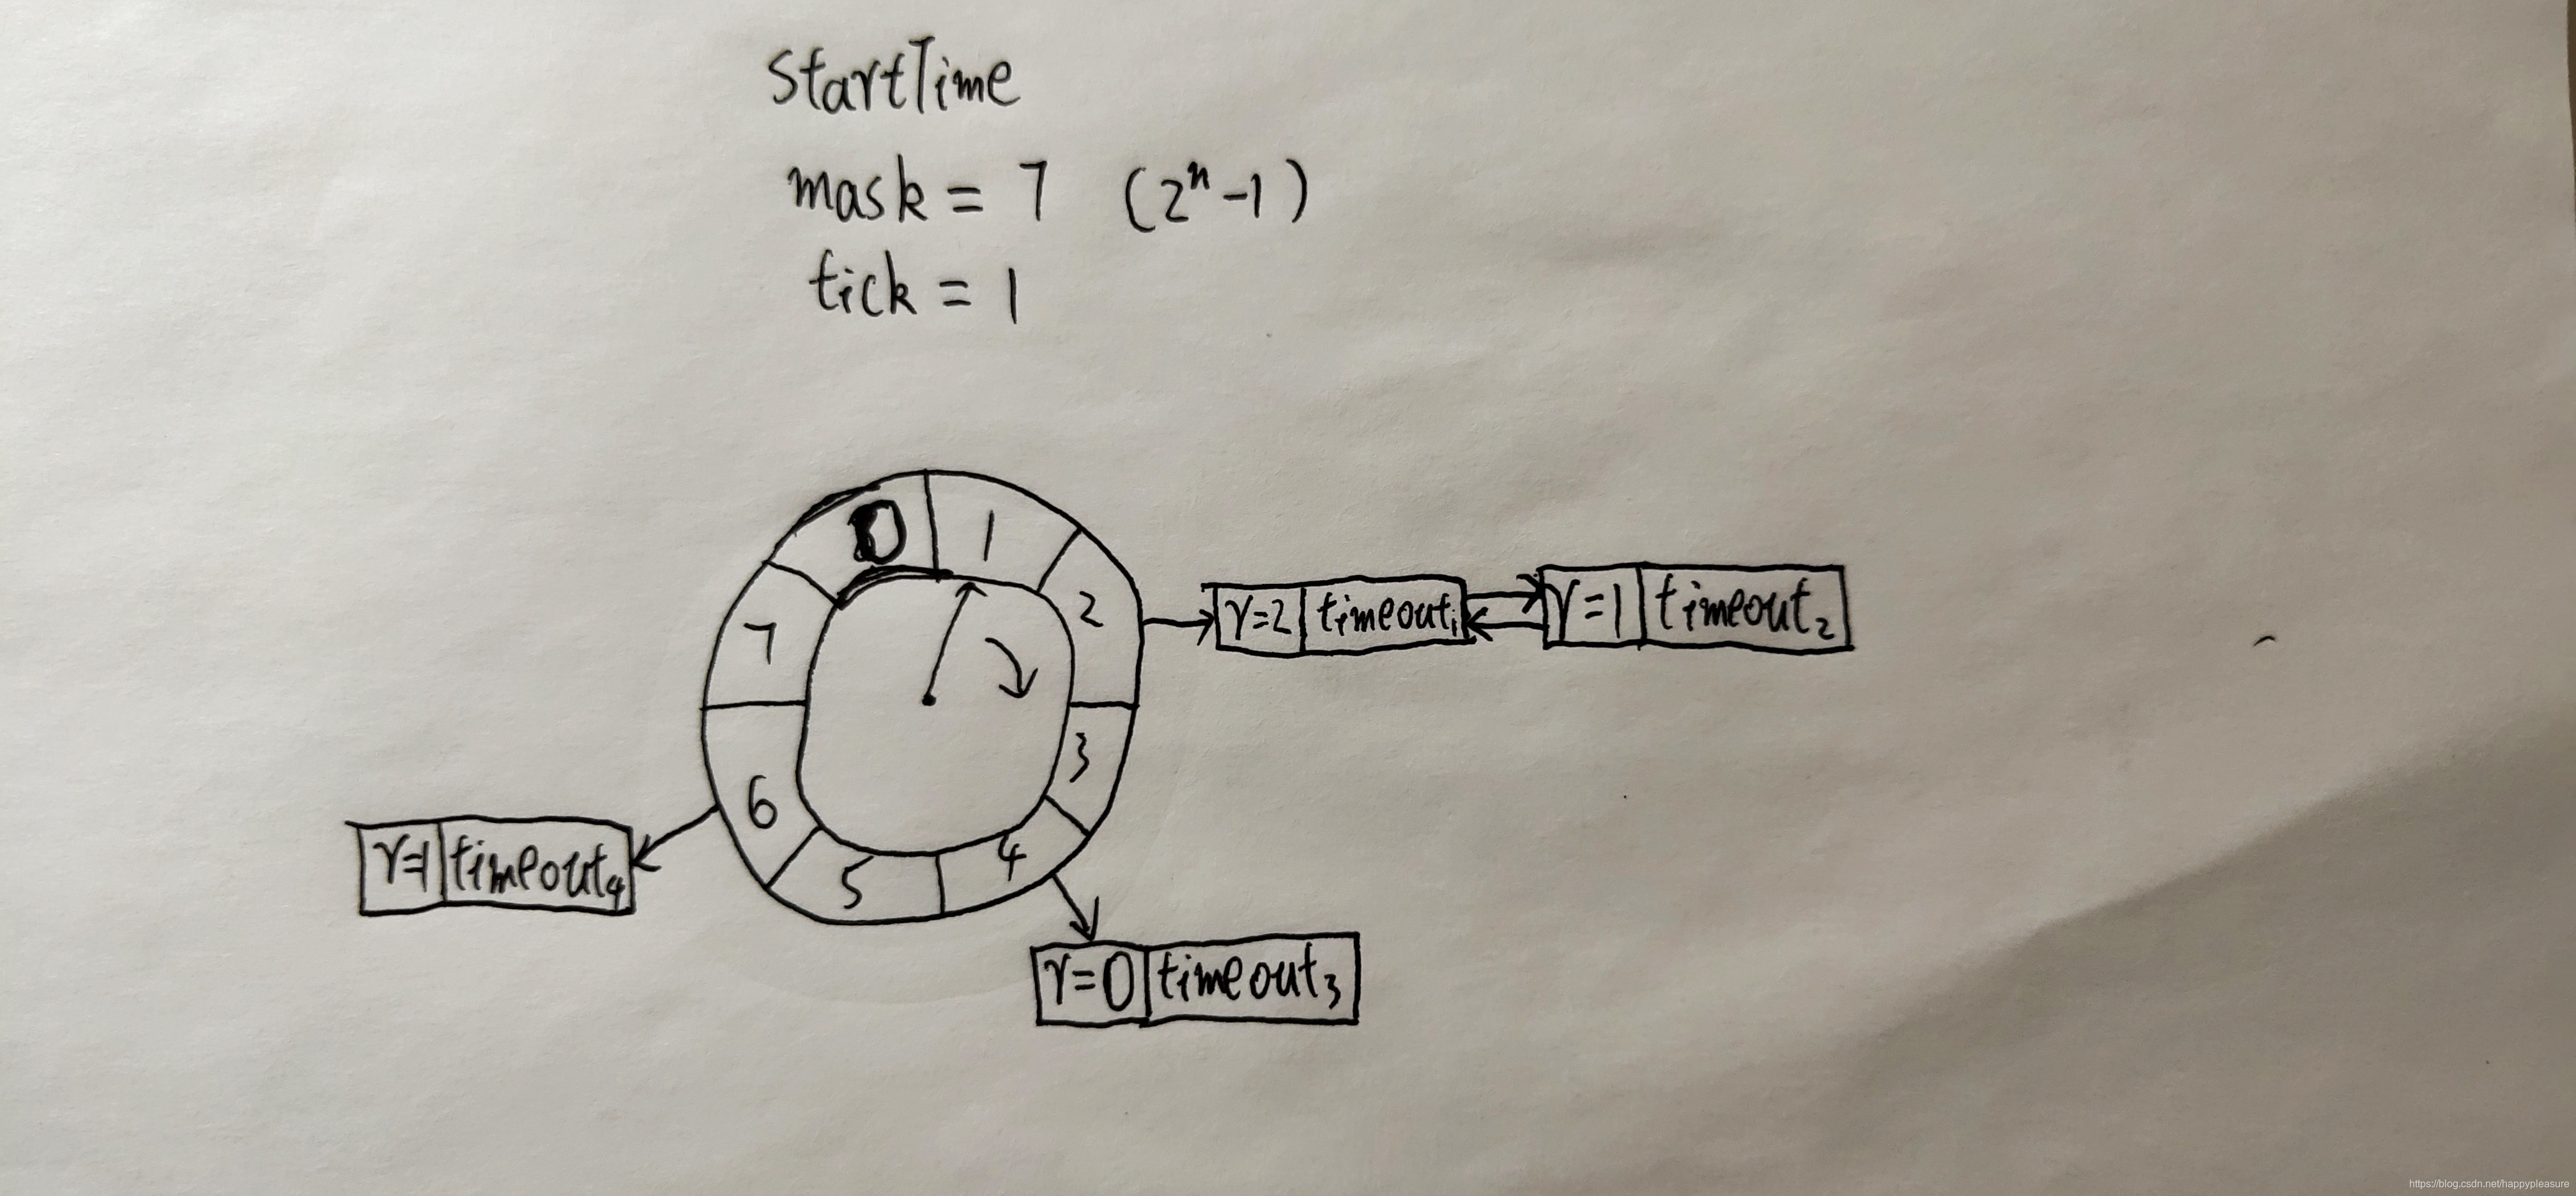 StartTime
mask = 7 (2ⁿ-1)
tick = 1
0
1
2
3
4
5
6
7
r=2 timeout₁
r=1 timeout₂
r=1 timeout₄
r=0 timeout₃
https://blog.csdn.net/happypleasure